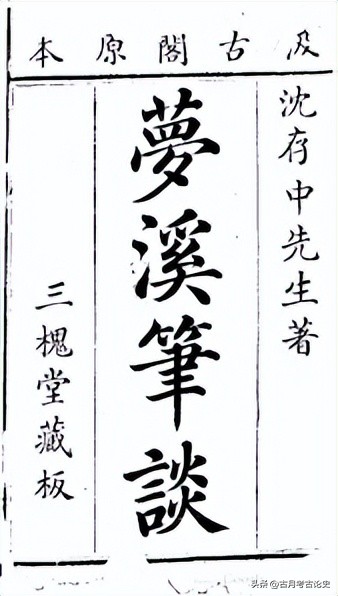 汲古閣原本
沈存中先生著
夢溪筆談
三槐堂藏板
头条 @古月考古论史